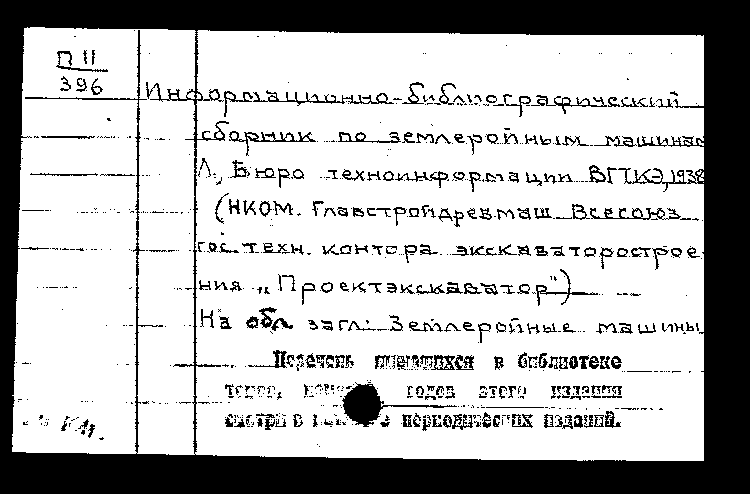 П II
396
Информационно-библиографический
сборник по землеройным машинам
Л., Бюро техноинформации ВГПКЭ, 1938
(НКОМ. Главстройдревмаш Всесоюз
гос. техн. контора экскаваторострое
ния „Проектэкскаватор")
На обл. загл: Землеройные машины
Перечень имеющихся в библиотеке
томов, годов этого издания
смотри в периодических изданий.